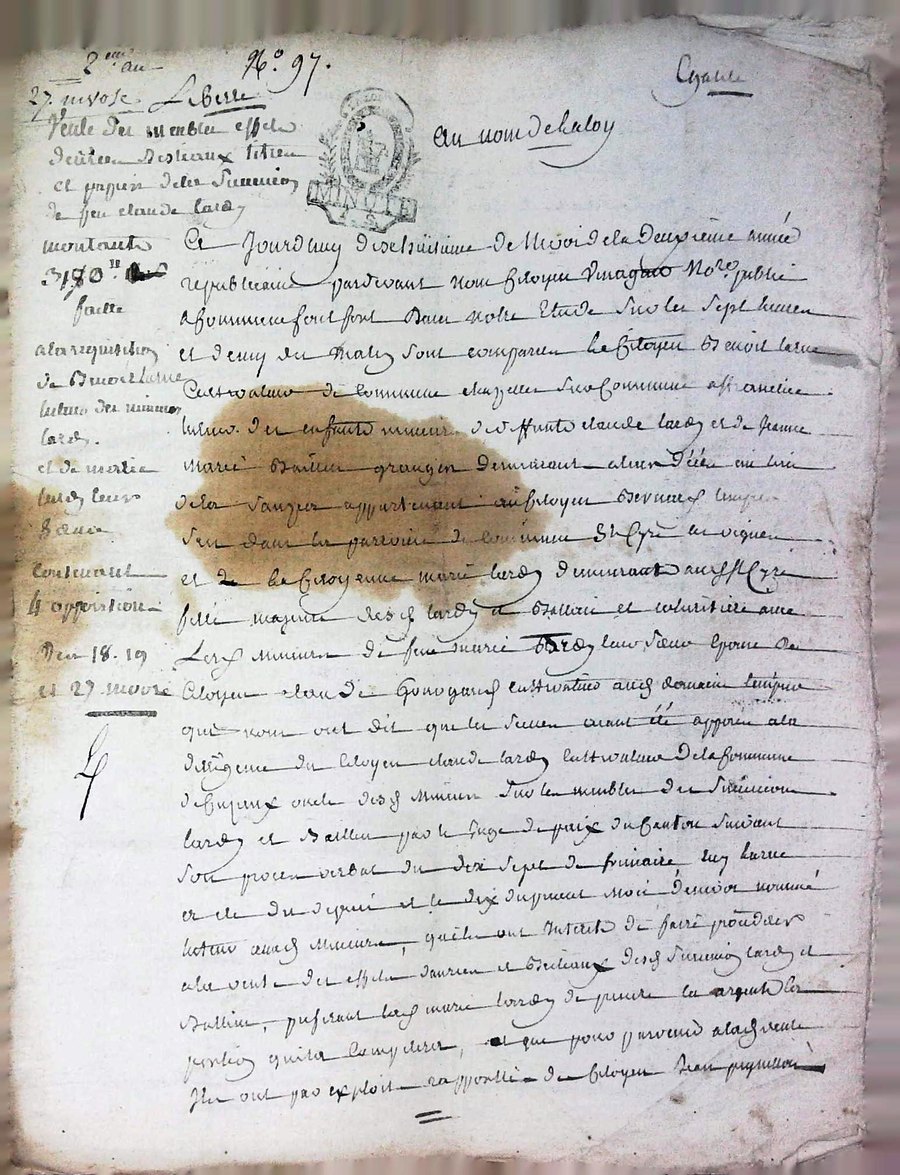 2eme an
N.o 97.
27. nivose Liberté
Egalité
Vente des meubles effets
denrées Bestiaux titres
et papiers de la Succession
de feu claude lardy
montante
3170 ₶
faitte
a la requisition
de Benoit larue
tuteur des mineurs
lardy.
et de marie
lardy leur
Sœur
contenant
4 opposition
Des 18. 19
et 27. nivose
MINUTE
Au nom de la loy
Ce Jourdhuy dixhuitieme de Nivose de la Deuxieme année
republicaine pardevant Nous Citoyen Nore public
a Commune font font Dans Notre Etude Sur les Sept heures
et demy du matin Sont comparus Le Citoyen Benoit larue
Cultivateur de Commune Sur Commune affranchie
tuteur des enfants mineurs de deffunts claude lardy et de Jeanne
marie Baillin granger demeurant alors D'iceux au lieu
de la appartenant au Citoyen
Sis dans la paroisse de Commune St Cyre les vignes
et de La Citoyenne marie lardy demeurant aussy St Cyre
fille majeure desd lardy et Baillin et cohéritière avec
Lesd Mineurs de feue marie lardy leur Sœur Epouse du
Citoyen claude cultivateur aud domaine
qui nous ont dit que les Scellés avant été apposés a la
diligence du Citoyen claude lardy Cultivateur De la Commune
de oncle desd Mineurs Sur les meubles des Succession
lardy et Baillin par le Juge de paix du Canton Suivant
Son procès verbal du dix Sept de frimaire luy larue
et le dix du present mois nommé
tuteur auxd Mineurs, qu'ils ont Interets de faire procéder
a la vente des effets denrées et Bestiaux desd Succession lardy et
Baillin, preferant lad marie lardy de prendre en argent les
portion qui la, et que pour parvenir a lad vente
Ils ont par exploit rapporté de Citoyen Jean